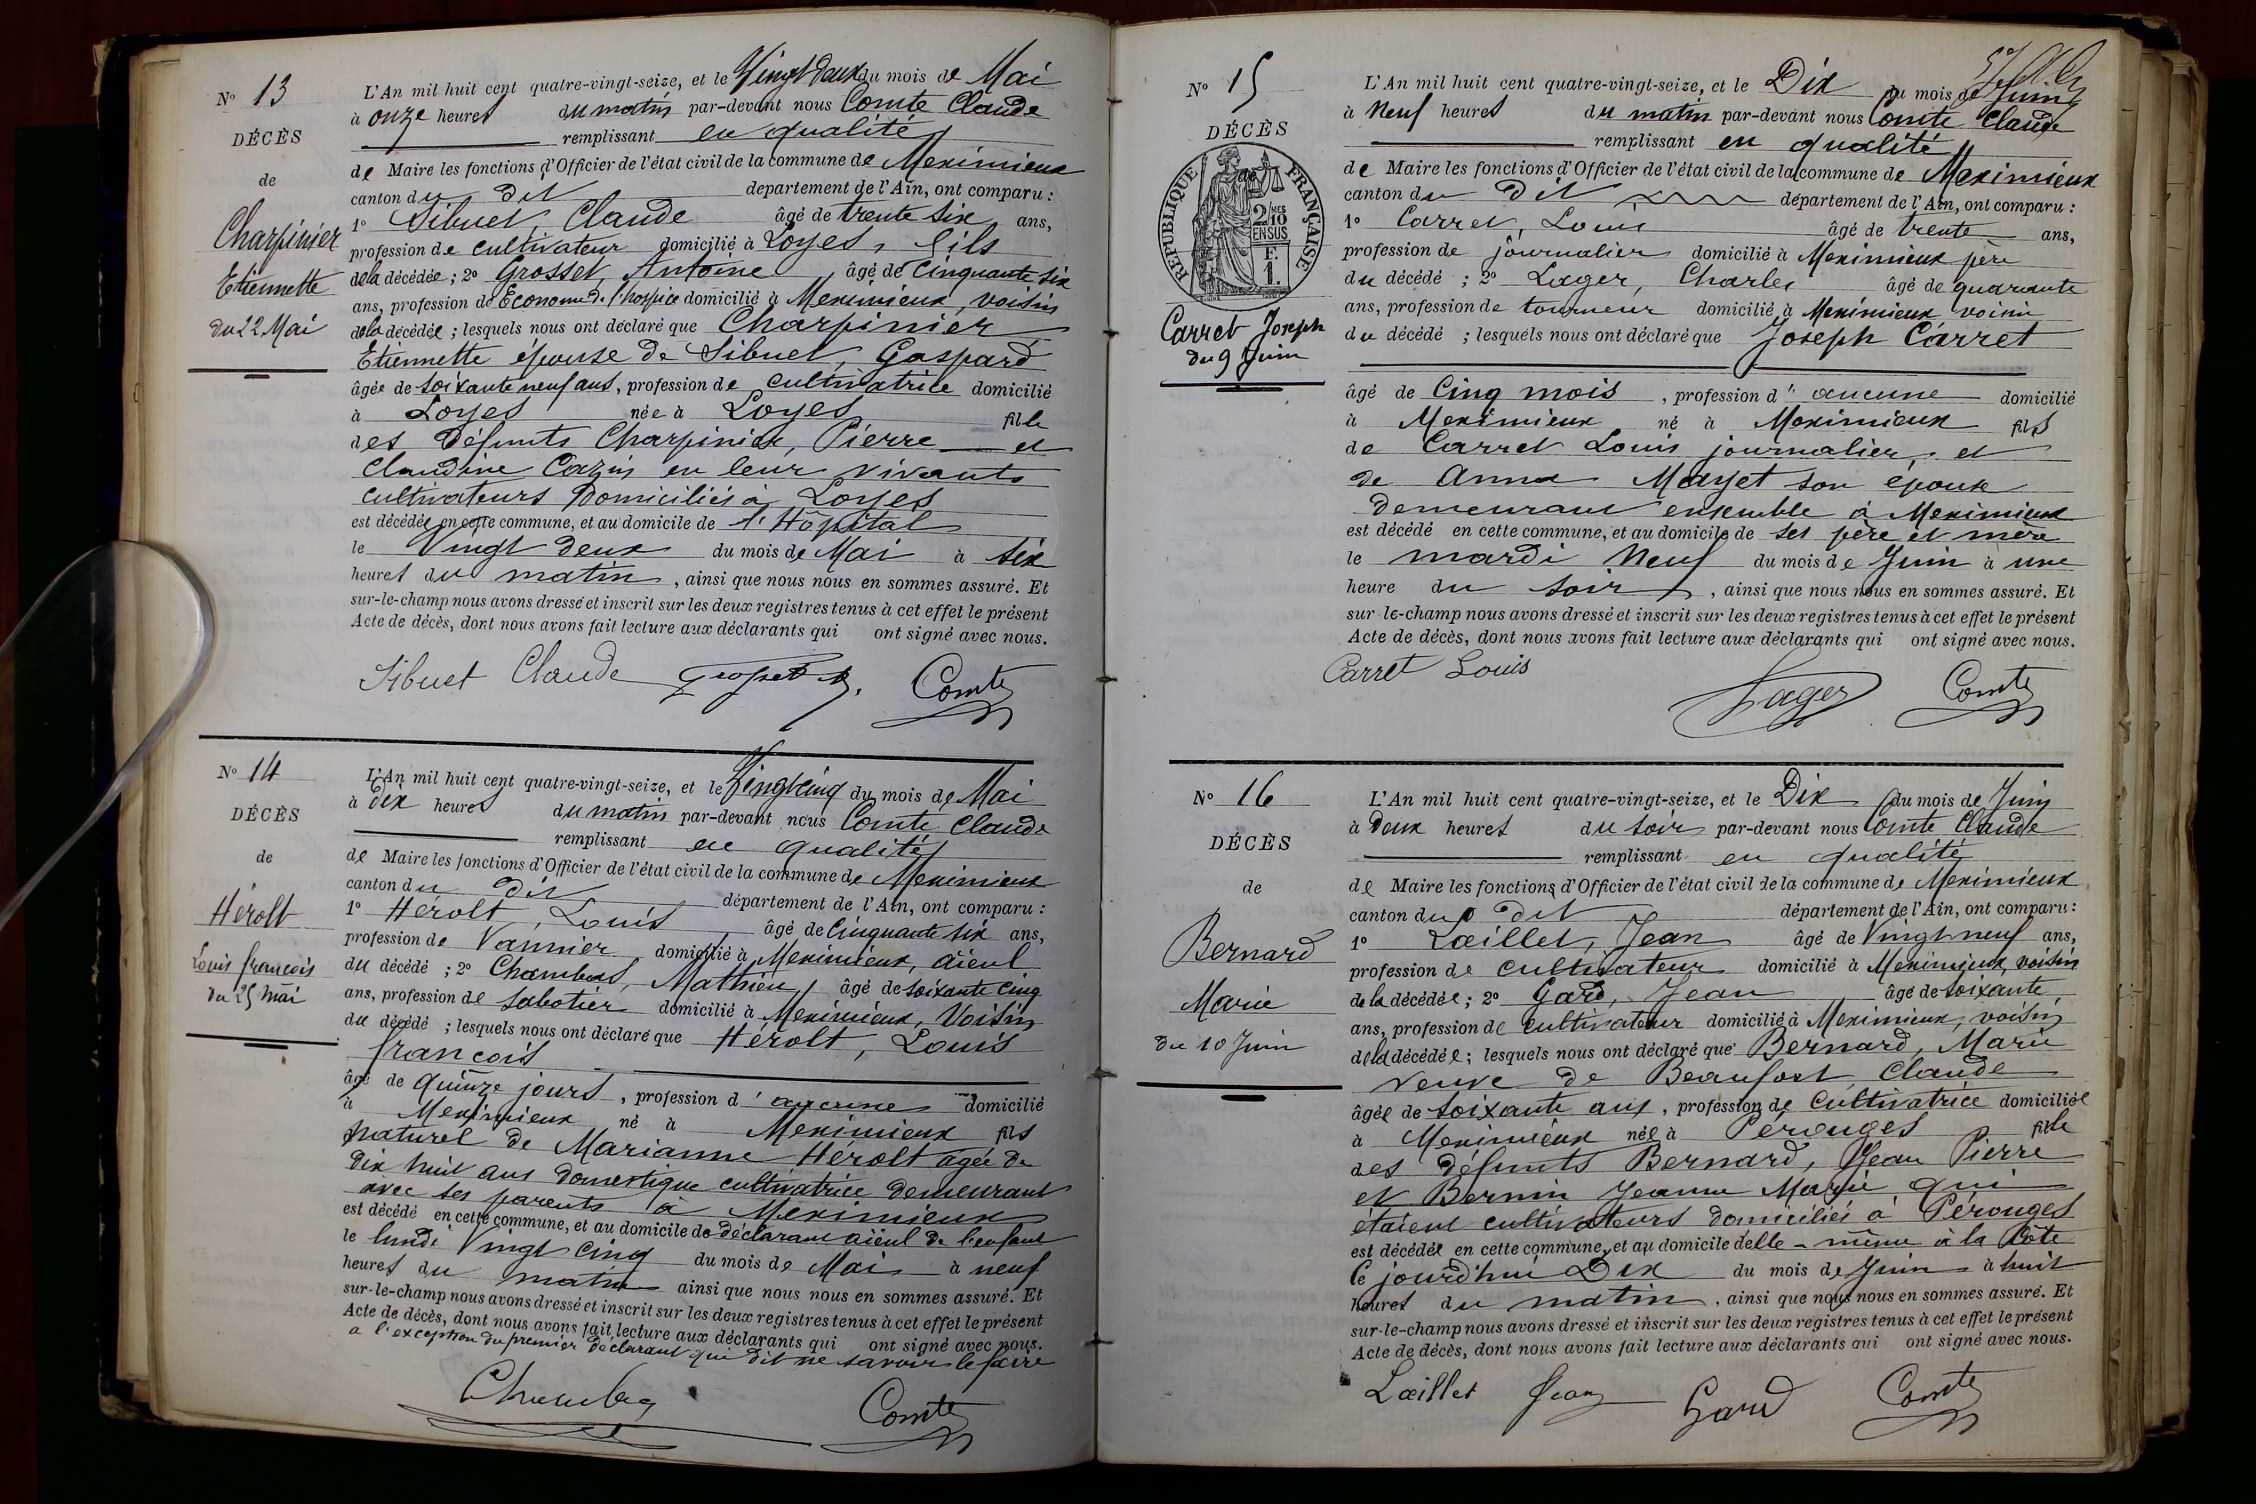 N° 13
DÉCÈS
de
Charpinier
Etiennette
du 22 Mai
L'An mil huit cent quatre-vingt-seize, et le Vingt deux du mois de Mai
à onze heures du matin par-devant nous Comte Claude
remplissant en qualité
de Maire les fonctions d'Officier de l'état civil de la commune de Meximieux
canton du dit département de l'Ain, ont comparu :
1° Sibuet, Claude âgé de trente six ans,
profession de cultivateur domicilié à Loyes, fils
de la décédée ; 2° Grosset, Antoine, âgé de Cinquante six
ans, profession de Econome de l'hospice domicilié à Meximieux, voisin
de la décédée ; lesquels nous ont déclaré que Charpinier
Etiennette épouse de Sibuet, Gaspard
âgée de soixante neuf ans, profession de cultivatrice domicilié
à Loyes née à Loyes fille
des défunts Charpinier, Pierre et
Claudine Cazin en leur vivants
cultivateurs Domiciliés à Loyes
est décédée en cette commune, et au domicile de l'Hôpital
le Vingt deux du mois de Mai à six
heures du matin, ainsi que nous nous en sommes assuré. Et
sur-le-champ nous avons dressé et inscrit sur les deux registres tenus à cet effet le présent
Acte de décès, dont nous avons fait lecture aux déclarants qui ont signé avec nous.
Sibuet Claude Grosset A. Comte
N° 14
DÉCÈS
de
Hérolt
Louis françois
du 25 Mai
L'An mil huit cent quatre-vingt-seize, et le Vingt cinq du mois de Mai
à Dix heures du matin par-devant nous Comte Claude
remplissant en qualité
de Maire les fonctions d'Officier de l'état civil de la commune de Meximieux
canton du dit département de l'Ain, ont comparu :
1° Hérolt, Louis âgé de Cinquante six ans,
profession de Vannier domicilié à Meximieux, aïeul
du décédé ; 2° Chambas, Mathieu, âgé de soixante cinq
ans, profession de sabotier domicilié à Meximieux, Voisin
du décédé ; lesquels nous ont déclaré que Hérolt, Louis
françois
âgé de quinze jours, profession d'aucune domicilié
à Meximieux né à Meximieux fils
naturel de Marianne Hérolt agée de
dix huit ans domestique cultivatrice demeurant
avec ses parents à Meximieux
est décédé en cette commune, et au domicile de déclarant aïeul de l'enfant
le lundi Vingt cinq du mois de Mai à neuf
heures du matin ainsi que nous nous en sommes assuré. Et
sur-le-champ nous avons dressé et inscrit sur les deux registres tenus à cet effet le présent
Acte de décès, dont nous avons fait lecture aux déclarants qui ont signé avec nous.
a l'exception du premier déclarant qui dit ne savoir le faire
Comte
N° 15
DÉCÈS
de
RÉPUBLIQUE FRANÇAISE
2/10 MES
EN SUS
F.
1.
Carret Joseph
du 9 Juin
L'An mil huit cent quatre-vingt-seize, et le Dix du mois de Juin
à Neuf heures du matin par-devant nous Comte Claude
remplissant en qualité
de Maire les fonctions d'Officier de l'état civil de la commune de Meximieux
canton du dit département de l'Ain, ont comparu :
1° Carret, Louis âgé de trente ans,
profession de journalier domicilié à Meximieux père
du décédé ; 2° Lager, Charles âgé de quarante
ans, profession de tourneur domicilié à Meximieux voisin
du décédé ; lesquels nous ont déclaré que Joseph Carret
âgé de Cinq mois, profession d'aucune domicilié
à Meximieux né à Meximieux fils
de Carret Louis journalier, et
de Anna Mayet son épouse
demeurant ensemble à Meximieux
est décédé en cette commune, et au domicile de ses père et mère
le mardi Neuf du mois de Juin à une
heure du soir, ainsi que nous nous en sommes assuré. Et
sur-le-champ nous avons dressé et inscrit sur les deux registres tenus à cet effet le présent
Acte de décès, dont nous avons fait lecture aux déclarants qui ont signé avec nous.
Carret Louis Lager Comte
N° 16
DÉCÈS
de
Bernard
Marie
du 10 Juin
L'An mil huit cent quatre-vingt-seize, et le Dix du mois de Juin
à Deux heures du soir par-devant nous Comte Claude
remplissant en qualité
de Maire les fonctions d'Officier de l'état civil de la commune de Meximieux
canton du dit département de l'Ain, ont comparu :
1° Lœillet, Jean âgé de Vingt neuf ans,
profession de cultivateur domicilié à Meximieux, voisin
de la décédée ; 2° Gard, Jean âgé de soixante
ans, profession de cultivateur domicilié à Meximieux, voisin
de la décédée ; lesquels nous ont déclaré que Bernard, Marie
veuve de Beaufort Claude
âgée de soixante ans, profession de Cultivatrice domiciliée
à Meximieux née à Pérouges fille
des défunts Bernard, Jean Pierre
et Bernin Jeanne Marie qui
étaient cultivateurs domiciliés à Pérouges
est décédée en cette commune, et au domicile d'elle-même à la Côte
le jourd'hui Dix du mois de Juin à huit
heures du matin, ainsi que nous nous en sommes assuré. Et
sur-le-champ nous avons dressé et inscrit sur les deux registres tenus à cet effet le présent
Acte de décès, dont nous avons fait lecture aux déclarants qui ont signé avec nous.
Lœillet Jean Gard Comte